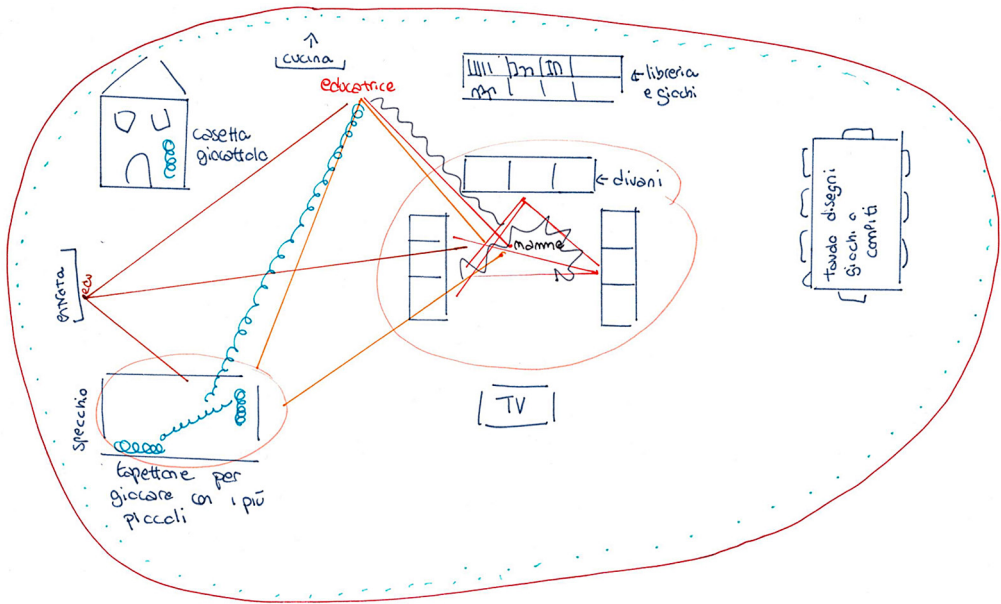 cucina
educatrice
libreria
e giochi
casetta
giocattolo
divani
mamme
tavolo disegni
giochi o
compiti
entrata
edu
specchio
TV
tapettone per
giocare con i più
piccoli